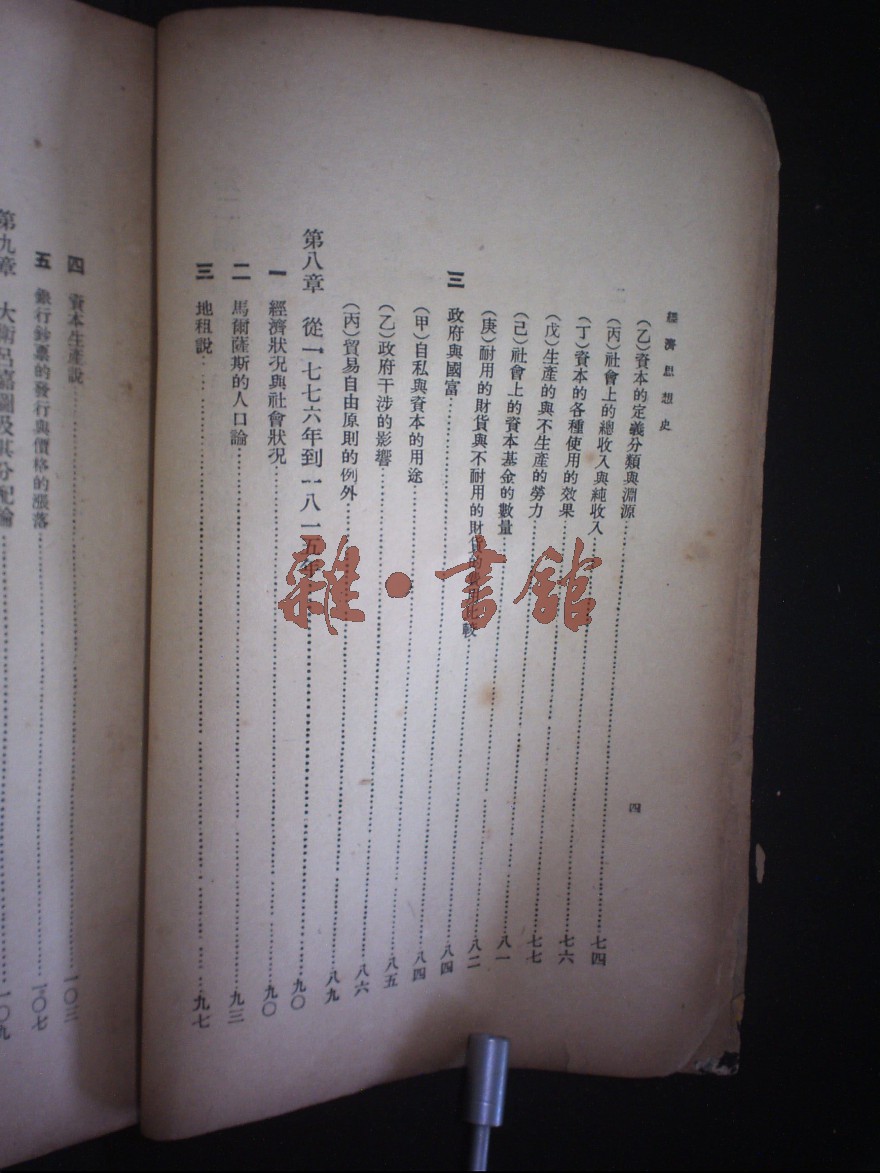 經濟思想史
四
(乙)資本的定義分類與淵源……七四
(丙)社會上的總收入與純收入……七六
(丁)資本的各種使用的效果……七七
(戊)生產的與不生產的勞力……八一
(己)社會上的資本基金的數量……八二
(庚)耐用的財貨與不耐用的財貨的比較……八四
三 政府與國富……八四
(甲)自私與資本的用途……八五
(乙)政府干涉的影響……八六
(丙)貿易自由原則的例外……八九
第八章 從一七七六年到一八一五年……九〇
一 經濟狀況與社會狀況……九〇
二 馬爾薩斯的人口論……九三
三 地租說……九七
四 資本生產說……一〇三
五 銀行鈔票的發行與價格的漲落……一〇七
第九章 大衛呂嘉圖及其分配論……一〇九
雜·書館